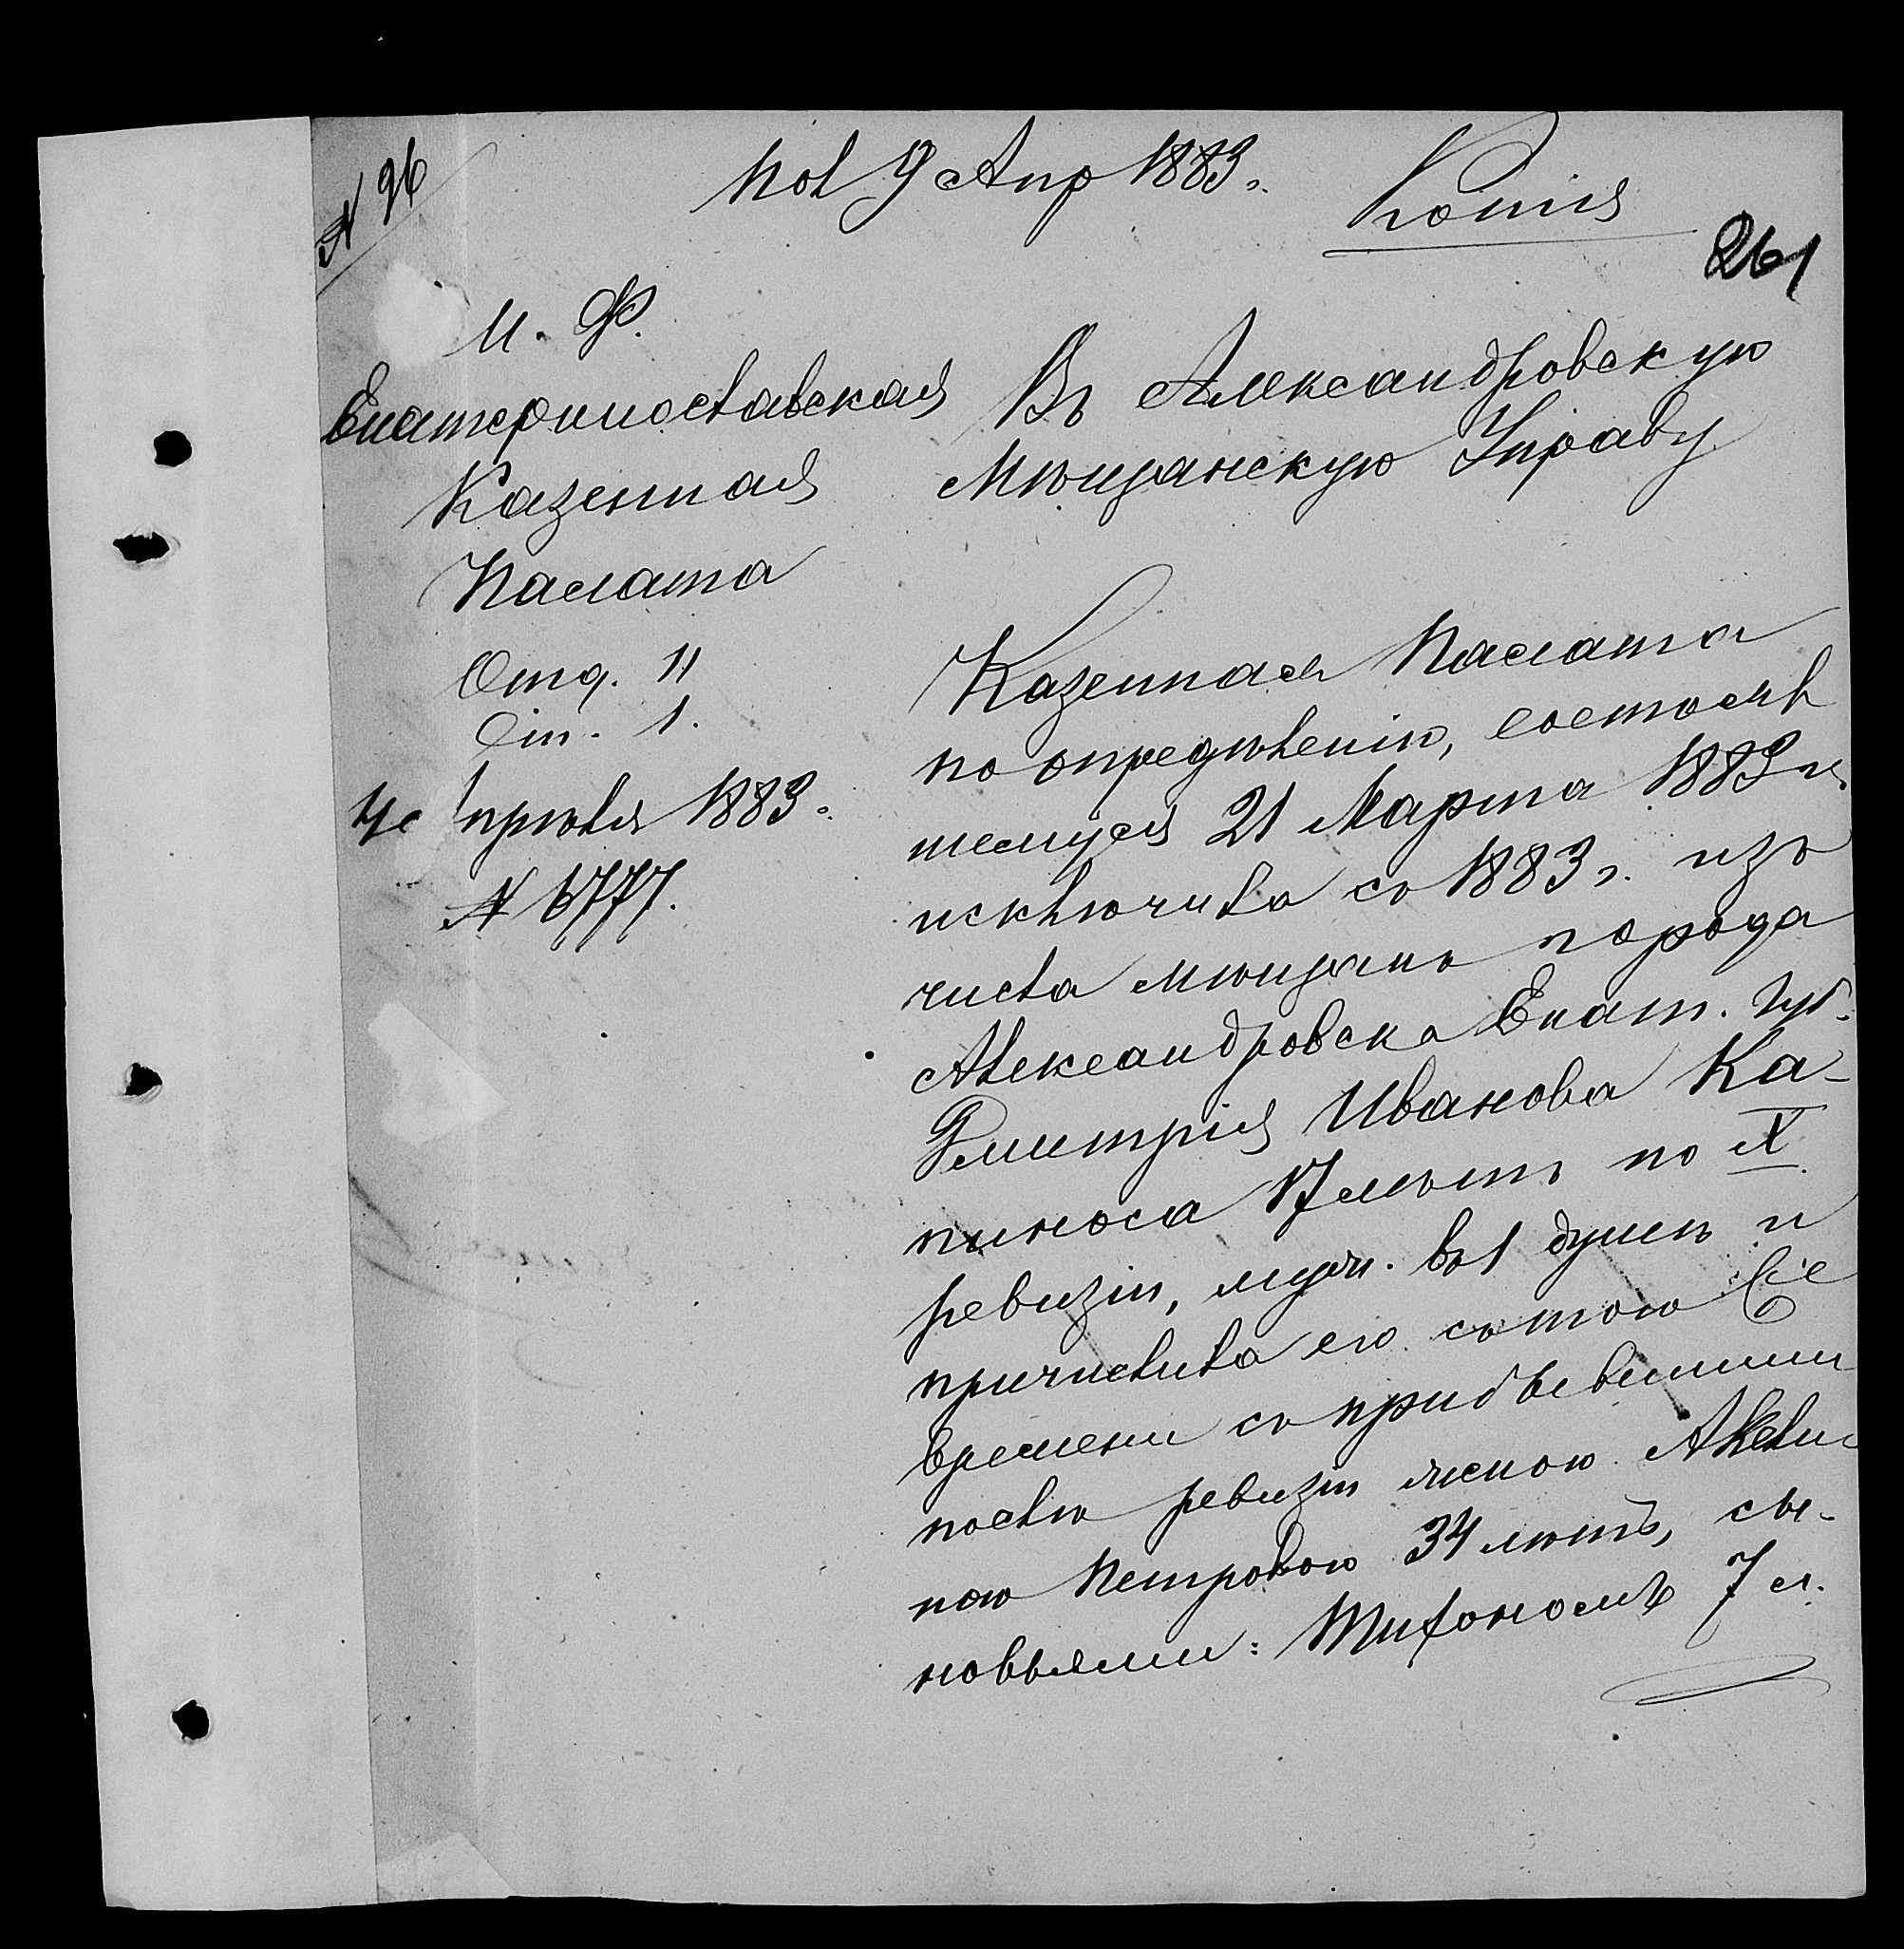 № 96
Пол 9 Апр 1883 г.
Копія
261
М. Ф.
Екатеринославская
Казенная
Палата
Отд. II
Ст. 1.
Апрѣля 1883 г.
№ 6777.
Въ Александровскую
Мѣщанскую Управу
Казенная Палата
по опредѣленію, состояв
шемуся 21 Марта 1883 г.
исключила съ 1883 г. изъ
числа мѣщанъ города
Александровска Екат. Губ.
Дмитрія Иванова Ка-
пиноса 17 лѣтъ по X
ревизіи, муж. въ 1 душѣ и
причислила его съ того же
времени съ прибывшими
послѣ ревизіи женою Акели
ною Петровою 34 лѣтъ, сы-
новьями: Тихономъ 7 л.